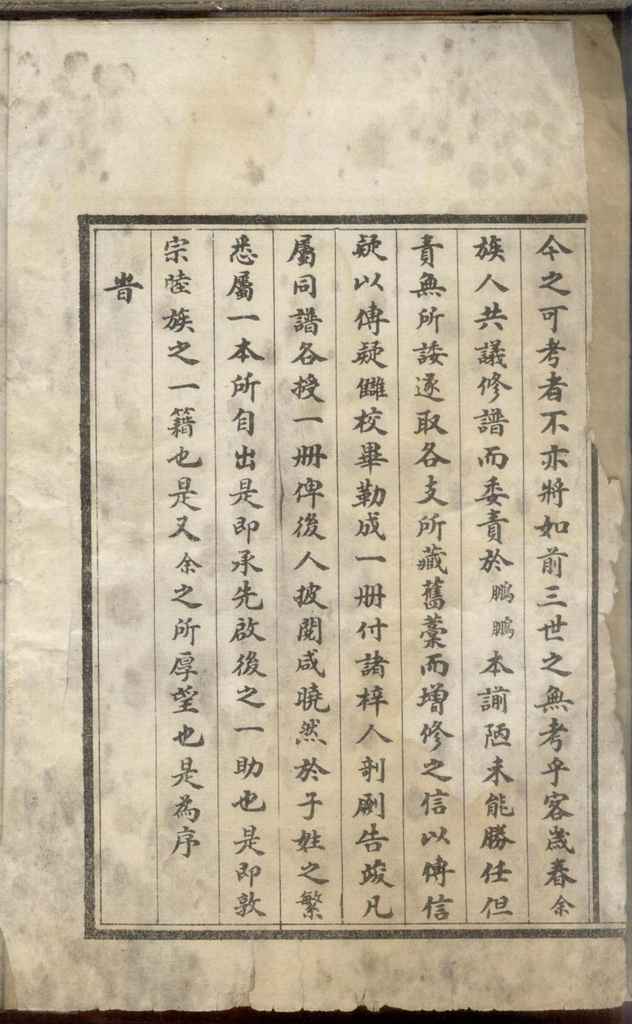 今之可考者不亦將如前三世之無考乎客歲春余
族人共議修譜而委責於鵬鵬本謭陋未能勝任但
責無所諉遂取各支所藏舊藁而增修之信以傳信
疑以傳疑讎校畢勒成一册付諸梓人剞劂告竣凡
屬同譜各授一册俾後人披閱咸曉然於子姓之繁
悉屬一本所自出是即承先啟後之一助也是即敦
宗睦族之一籍也是又余之所厚望也是為序
旹